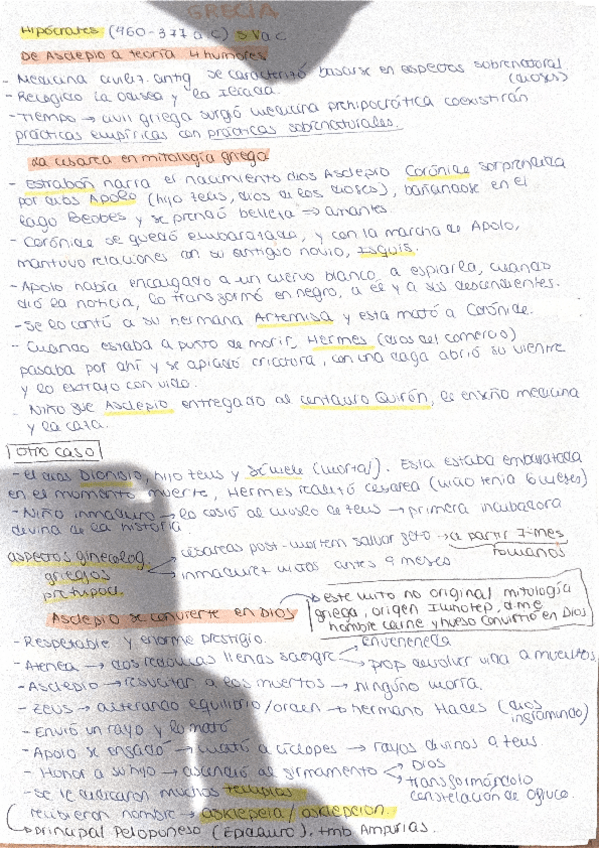 GRECIA
Hipócrates (460-377 a c) s V a c
De Asclepio a teoría 4 humores
- Medicina civiliz. antig se caracterizó basarse en aspectos sobrenatural.
(dioses)
- Recogido la odisea y la Iliada.
- Tiempo → civil griega surgió medicina prehipocrática coexistirán
prácticas empíricas con prácticas sobrenaturales.
La cesarea en mitología griega
- Estrabón narra el nacimiento dios Asclepio Corónide sorprendida
por dios Apolo (hijo Zeus, dios de los dioses), bañandose en el
lago Beobes y se prendó belleza → amantes.
- Corónide se quedó embarazada, y con la marcha de Apolo,
mantuvo relaciones con su antiguo novio, Isquis.
- Apolo había encargado a un cuervo blanco a espiarla, cuando
dió la noticia, lo transformó en negro, a él y a sus descendientes.
- Se lo contó a su hermana Artemisa y esta mató a Corónide.
- Cuando estaba a punto de morir, Hermes (dios del comercio)
pasaba por ahí y se apiadó criatura, con una daga abrió su vientre
y lo extrajo con vida.
- Niño fue Asclepio entregado al centauro Quirón, le enseño medicina
y la caza.
Otro caso
- el dios Dionisio, hijo Zeus y Sémele (mortal). Esta estaba embarazada
en el momento muerte, Hermes realizó cesarea (niño tenia 6 meses)
- Niño inmaduro → lo cosió al muslo de Zeus → primera incubadora
divina de la historia.
aspectos ginecolog
griegos
cesareas post-mortem salvar feto → a partir 7-mes
romanos
inmadurez niños antes 9 meses
Asclepio se convierte en Dios
→ este mito no original mitología
griega, origen Imhotep, d me
hombre carne y hueso convirtió en Dios
- Respetable y enorme prestigio.
- Atenea → dos redomas llenas sangre
envenenada
prop devolver vida a muertos
- Asclepio → resucitar a los muertos → ninguno moría.
- Zeus → alterando equilibrio/orden → hermano Hades (dios
inframundo)
- Envió un rayo y lo mató
- Apolo se enfadó → mató a cíclopes → rayos divinos a Zeus.
- Honor a su hijo → ascendió al firmamento
Dios
transformándolo
constelación de Ofiuco.
- Se le dedicaron muchos templos
recibieron nombre → asklepeia/asklepeion.
→ principal Peloponeso (Epidauro), tmb Ampurias.